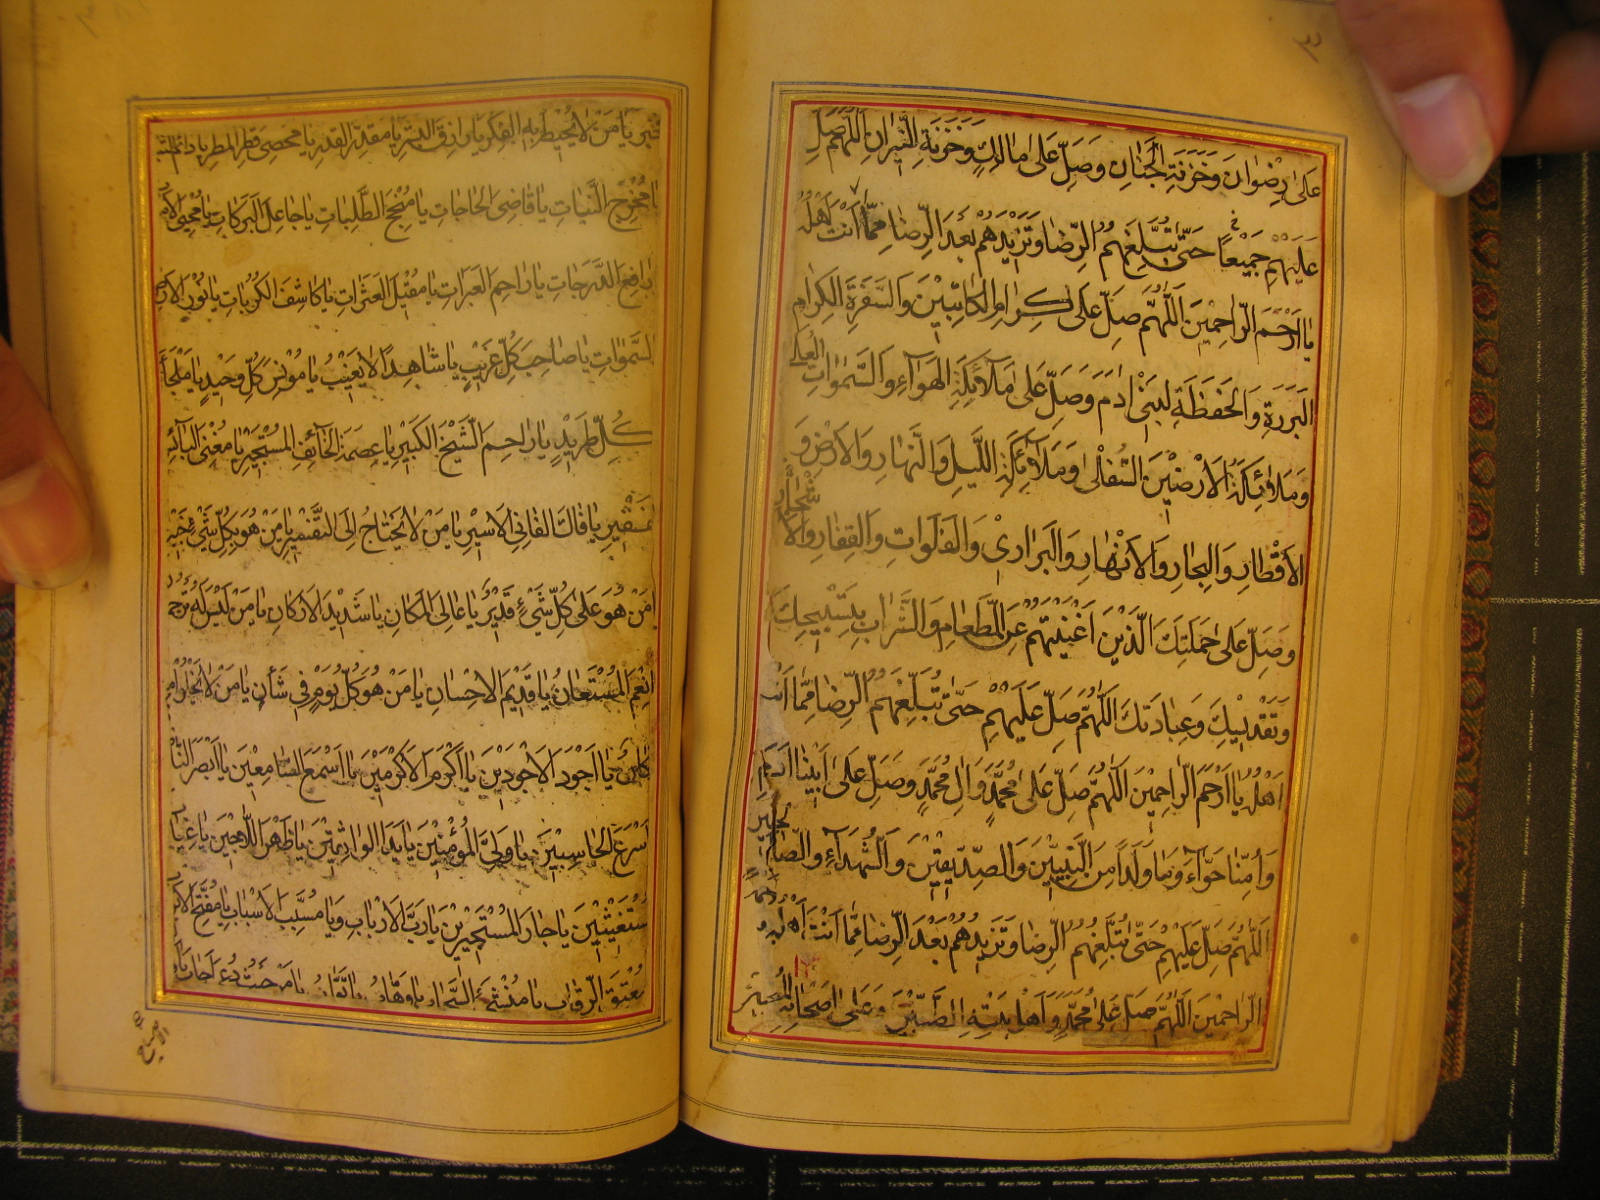 ٣
على رضوان وخزنة الجنان وصل على مالك وخزنة النيران اللهم صل
عليهم جميعا حتى تبلغهم الرضا وتزيدهم بعد الرضا مما انت اهله
يا ارحم الراحمين اللهم صل على الكرام الكاتبين والسفرة الكرام
البررة والحفظة لبني ادم وصل على ملائكة الهواء والسموات العلى
وملائكة الارضين السفلى وملائكة الليل والنهار والارض و
الاقطار والبحار والانهار والبراري والفلوات والقفار والاشجار
وصل على ملائكتك الذين اغنيتهم عن الطعام والشراب بتسبيحك
وتقديسك وعبادتك اللهم صل عليهم حتى تبلغهم الرضا مما انت
اهله يا ارحم الراحمين اللهم صل على محمد وال محمد وصل على ابينا ادم
وامنا حواء وما ولدا من النبيين والصديقين والشهداء والصالحين
اللهم صل عليهم حتى تبلغهم الرضا وتزيدهم بعد الرضا مما انت اهله يا ارحم
الراحمين اللهم صل على محمد واهل بيته الطيبين وعلى اصحابه المنتجبين
يا من لا يحيط به الفكر يا رازق البشر يا مقدر القدر يا محصي قطر المطر يا دائم
يا مخرج النبات يا قاضي الحاجات يا منجح الطلبات يا جاعل البركات يا محيي
يا رافع الدرجات يا راحم العبرات يا مقيل العثرات يا كاشف الكربات يا نور الارض
السموات يا صاحب كل غريب يا شاهدا لا يغيب يا مونس كل وحيد يا ملجأ
كل طريد يا راحم الشيخ الكبير يا عصمة الخائف المستجير يا مغني البائس
يا فاك العاني الاسير يا من لا يحتاج الى التفسير يا من هو بكل شيء خبير
يا من هو على كل شيء قدير يا عالي المكان يا شديد الاركان يا من ليس له ترجمان
نعم المستعان يا قديم الاحسان يا من هو كل يوم في شأن يا من لا يخلو منه
يا اجود الاجودين يا اكرم الاكرمين يا اسمع السامعين يا ابصر
اسرع الحاسبين يا ولي المؤمنين يا يد الواثقين يا ظهر اللاجين يا غياث
المستغيثين يا جار المستجيرين يا رب الارباب ويا مسبب الاسباب يا مفتح
معتق الرقاب يا منشئ السحاب يا وهاب يا تواب يا من حيث دعي اجاب يا